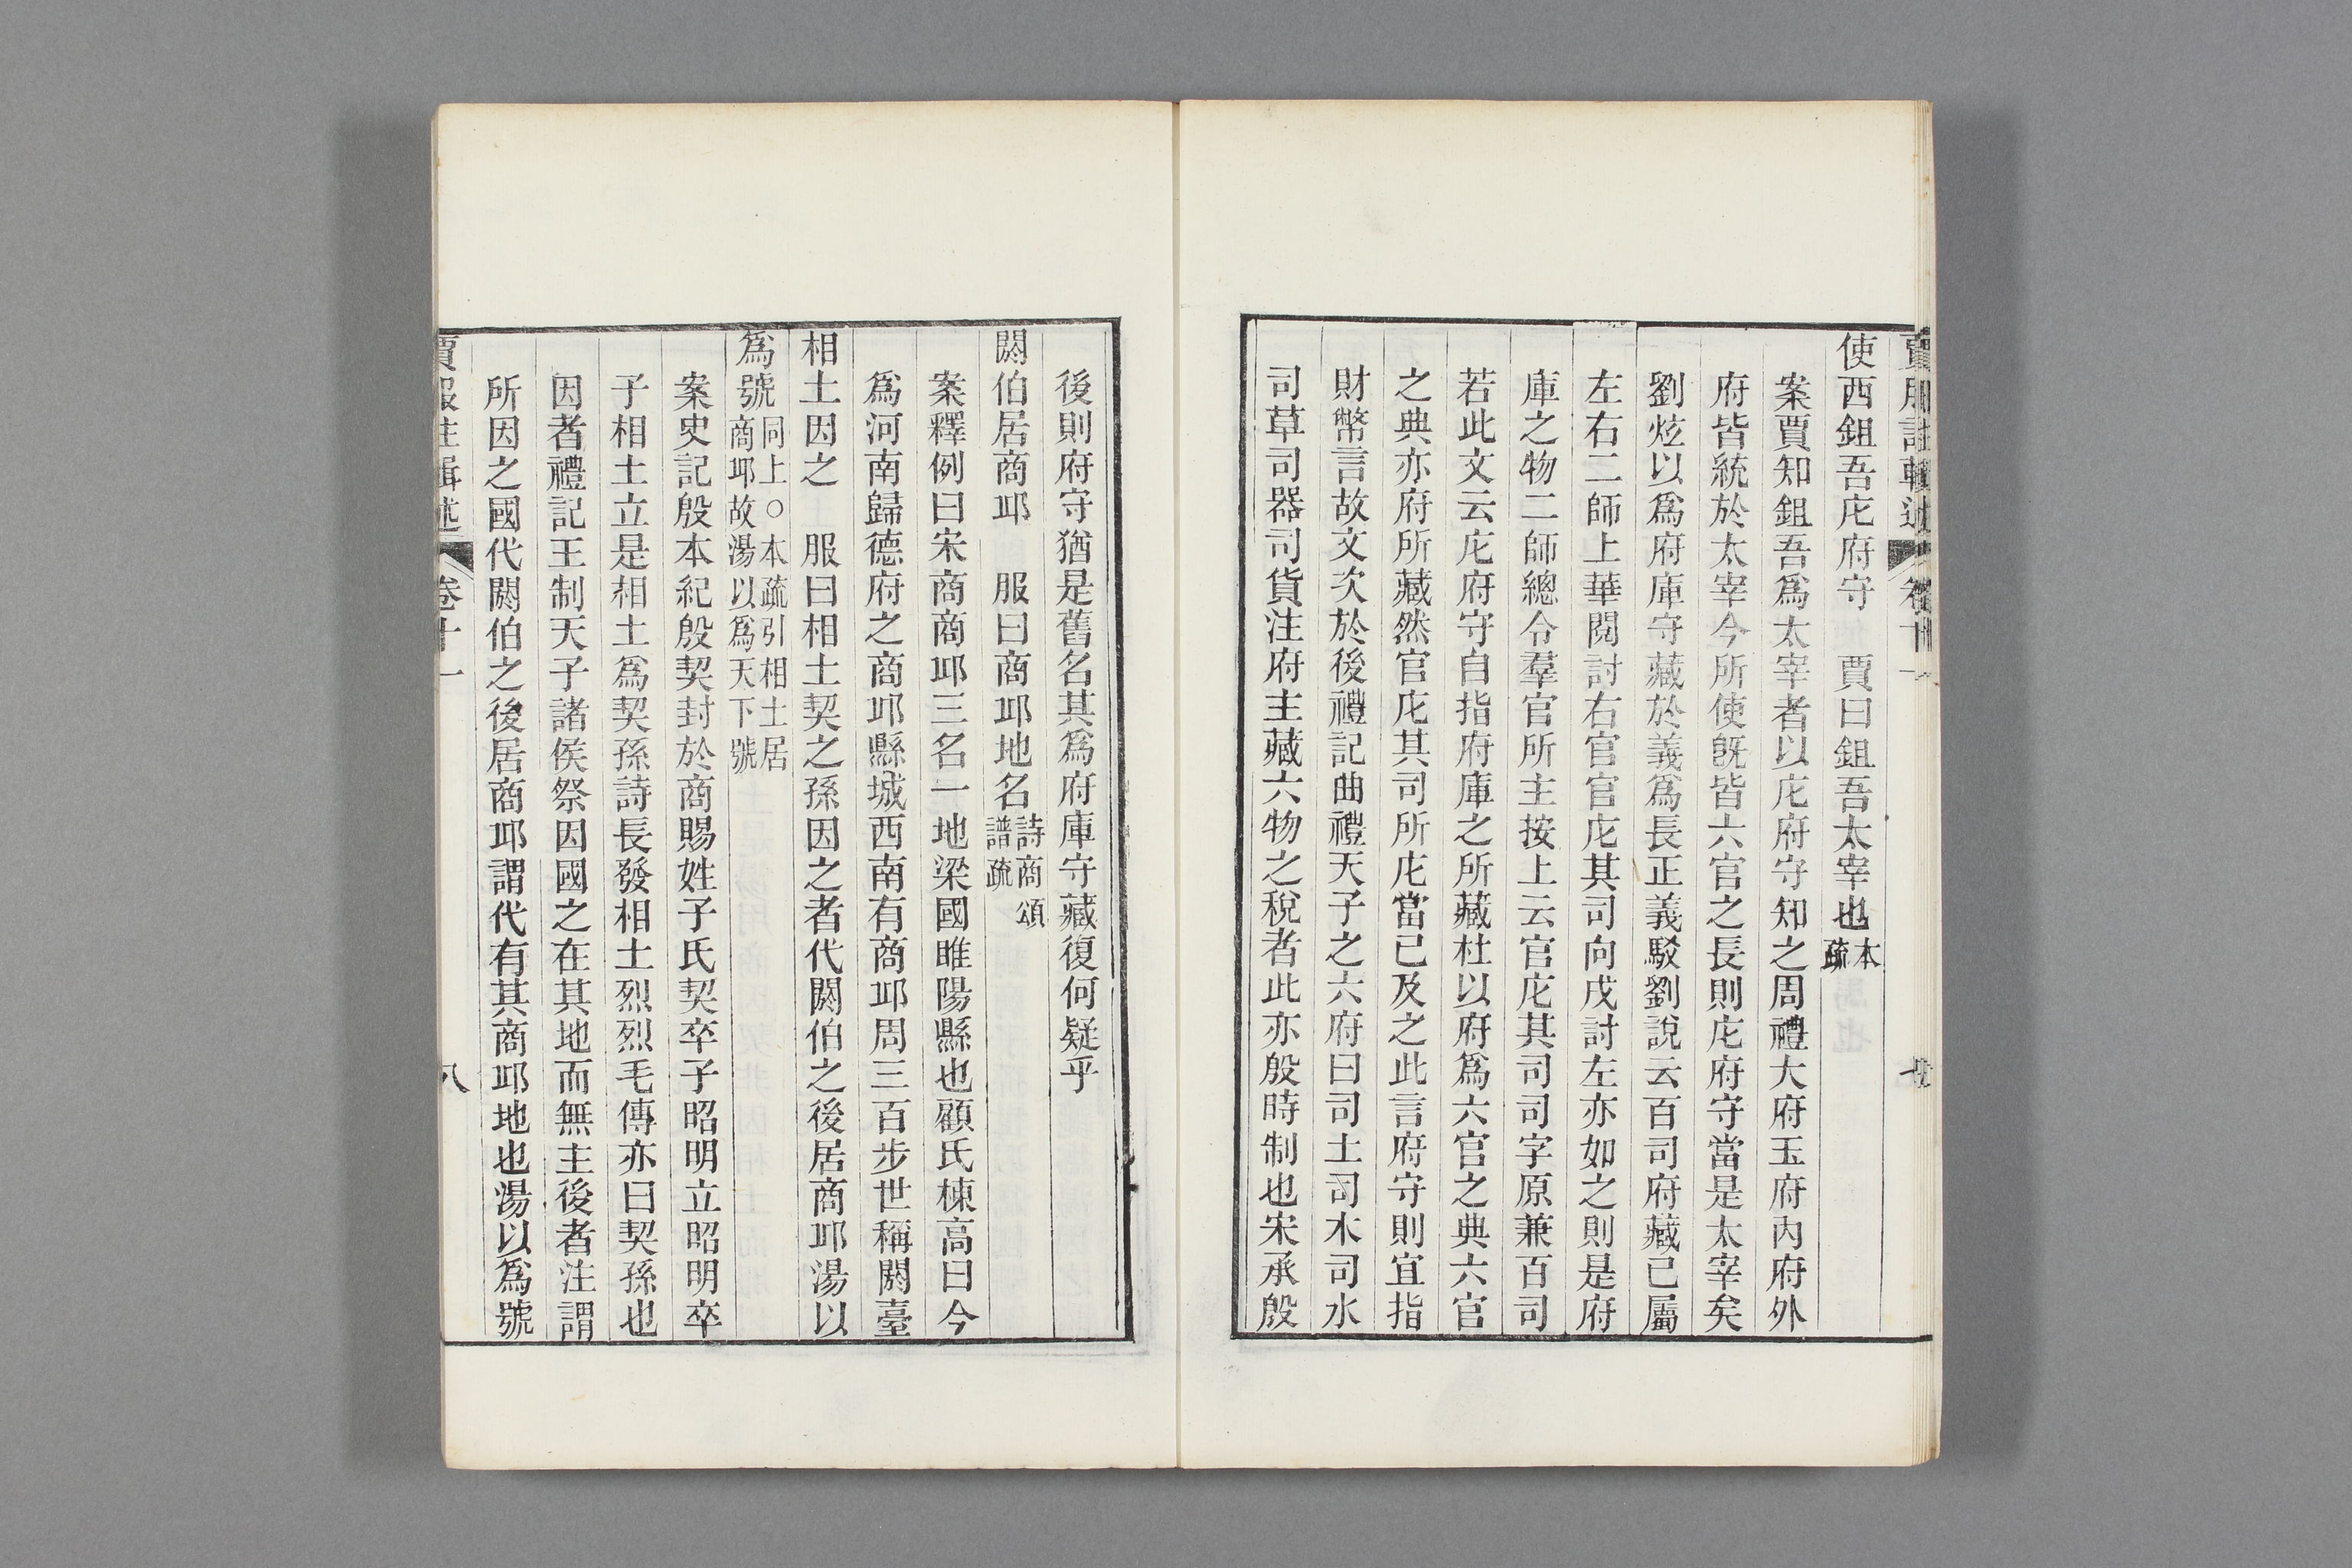 使西鉏吾庀府守　賈曰鉏吾太宰也本疏
案賈知鉏吾爲太宰者以庀府守知之周禮大府玉府內府外
府皆統於太宰今所使旣皆六官之長則庀府守當是太宰矣
劉炫以爲府庫守藏於義爲長正義駁劉說云百司府藏已屬
左右二師上華閱討右官官庀其司向戌討左亦如之則是府
庫之物二師總令羣官所主按上云官庀其司司字原兼百司
若此文云庀府守自指府庫之所藏杜以府爲六官之典六官
之典亦府所藏然官庀其司所庀當已及之此言府守則宜指
財幣言故文次於後禮記曲禮天子之六府曰司土司木司水
司草司器司貨注府主藏六物之稅者此亦殷時制也宋承殷
後則府守猶是舊名其爲府庫守藏復何疑乎
閼伯居商邱　服曰商邱地名詩商頌譜疏
案釋例曰宋商商邱三名一地梁國睢陽縣也顧氏棟高曰今
爲河南歸德府之商邱縣城西南有商邱周三百步世稱閼臺
相土因之　服曰相土契之孫因之者代閼伯之後居商邱湯以
爲號同上○本疏引相土居商邱故湯以爲天下號
案史記殷本紀殷契封於商賜姓子氏契卒子昭明立昭明卒
子相土立是相土爲契孫詩長發相土烈烈毛傳亦曰契孫也
因者禮記王制天子諸侯祭因國之在其地而無主後者注謂
所因之國代閼伯之後居商邱謂代有其商邱地也湯以爲號
賈服注輯述　卷十一　八